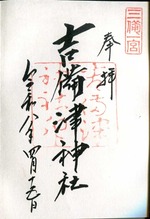 奉拝
三備一宮
吉備津神社
令和八年四月十五日